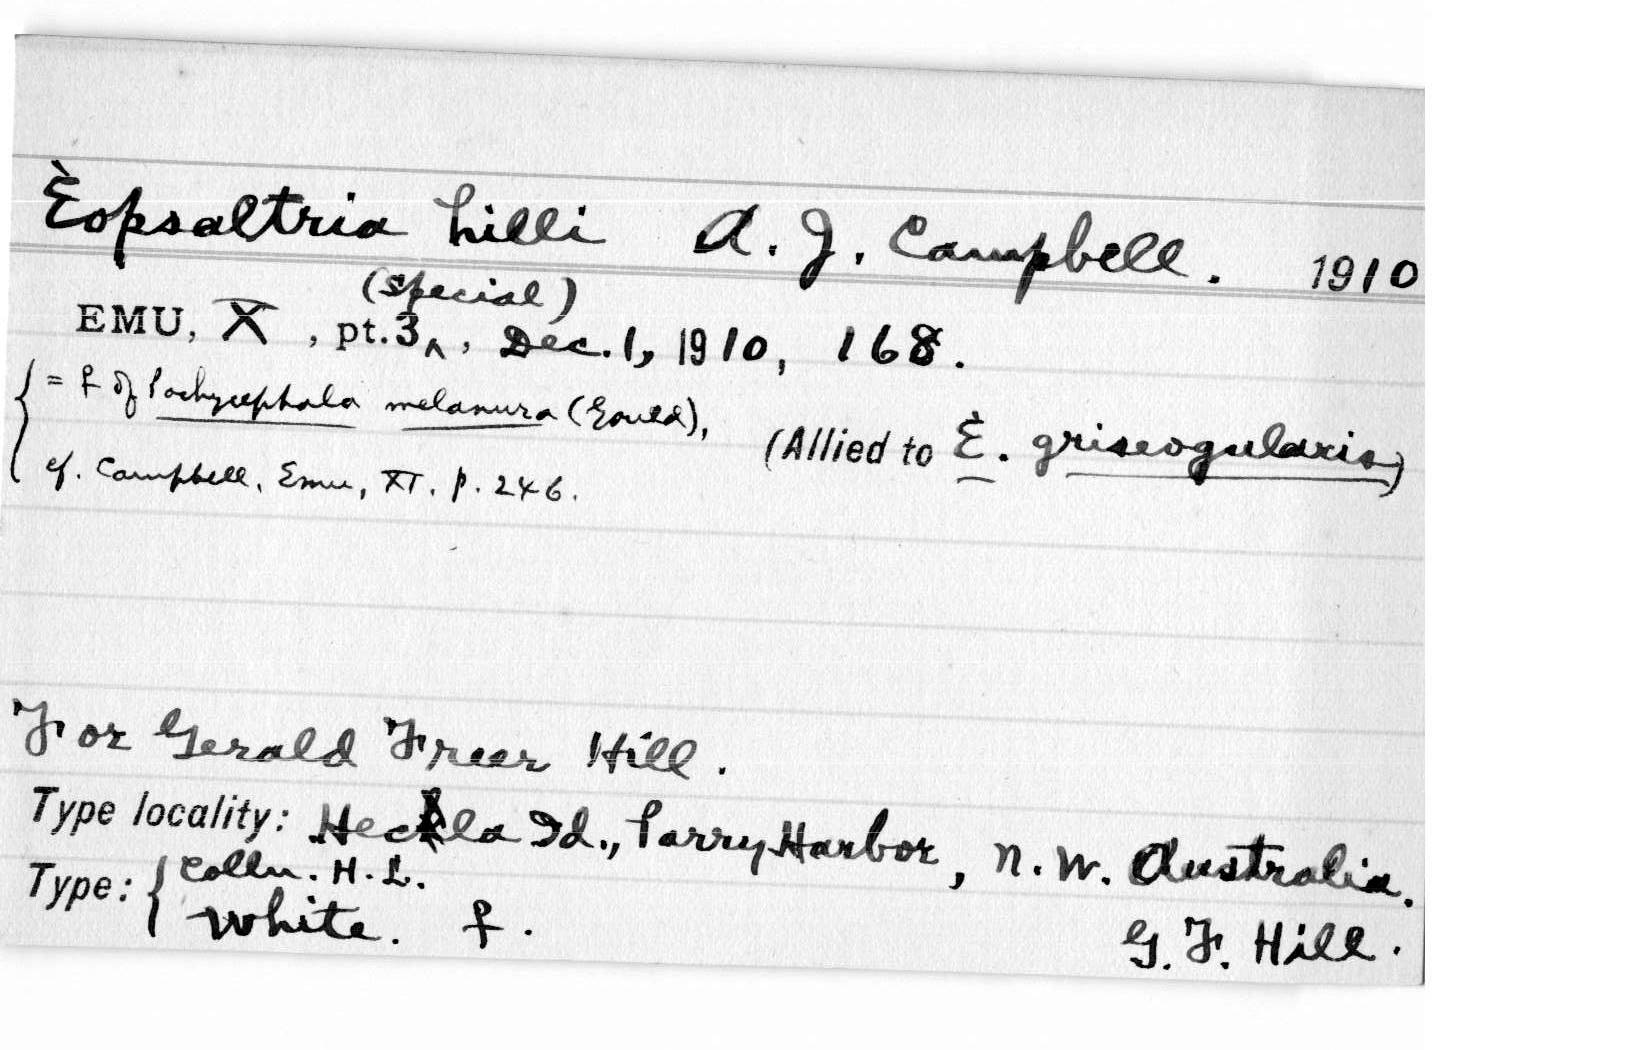 Èopsaltria hilli A. J. Campbell. 1910
(special)
EMU, X, pt.3‸, Dec. 1, 1910, 168.
= ♀ of Pachycephala melanura (Gould),
(Allied to È. griseogularis)
cf. Campbell, Emu, XI. p. 246.
For Gerald Freer Hill.
Type locality: Hecla Id., Parry Harbor, N. W. Australia.
Type: { Colln. H. L.
White. ♀.
G. F. Hill.